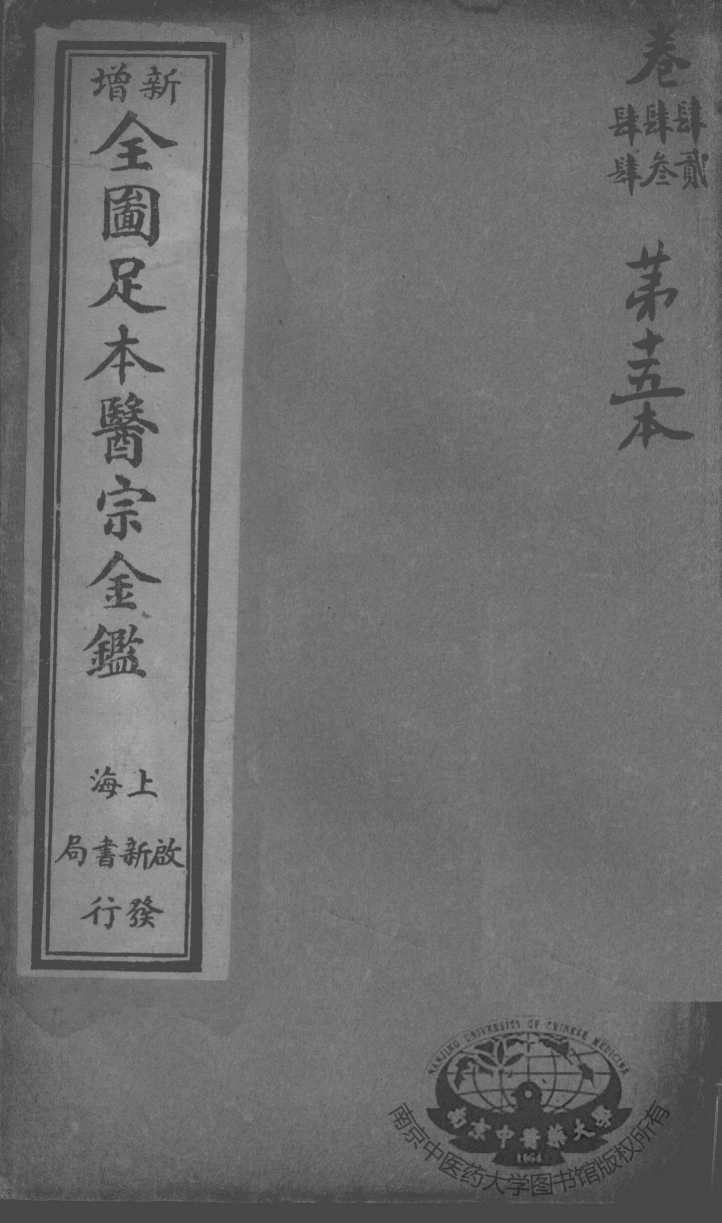 卷
肆肆肆
貳叁肆
第十五本
新增
全圖足本醫宗金鑑
上海
啟新書局
發行
NANJING UNIVERSITY OF CHINESE MEDICINE
南京中醫藥大學
1954
南京中医药大学图书馆版权所有